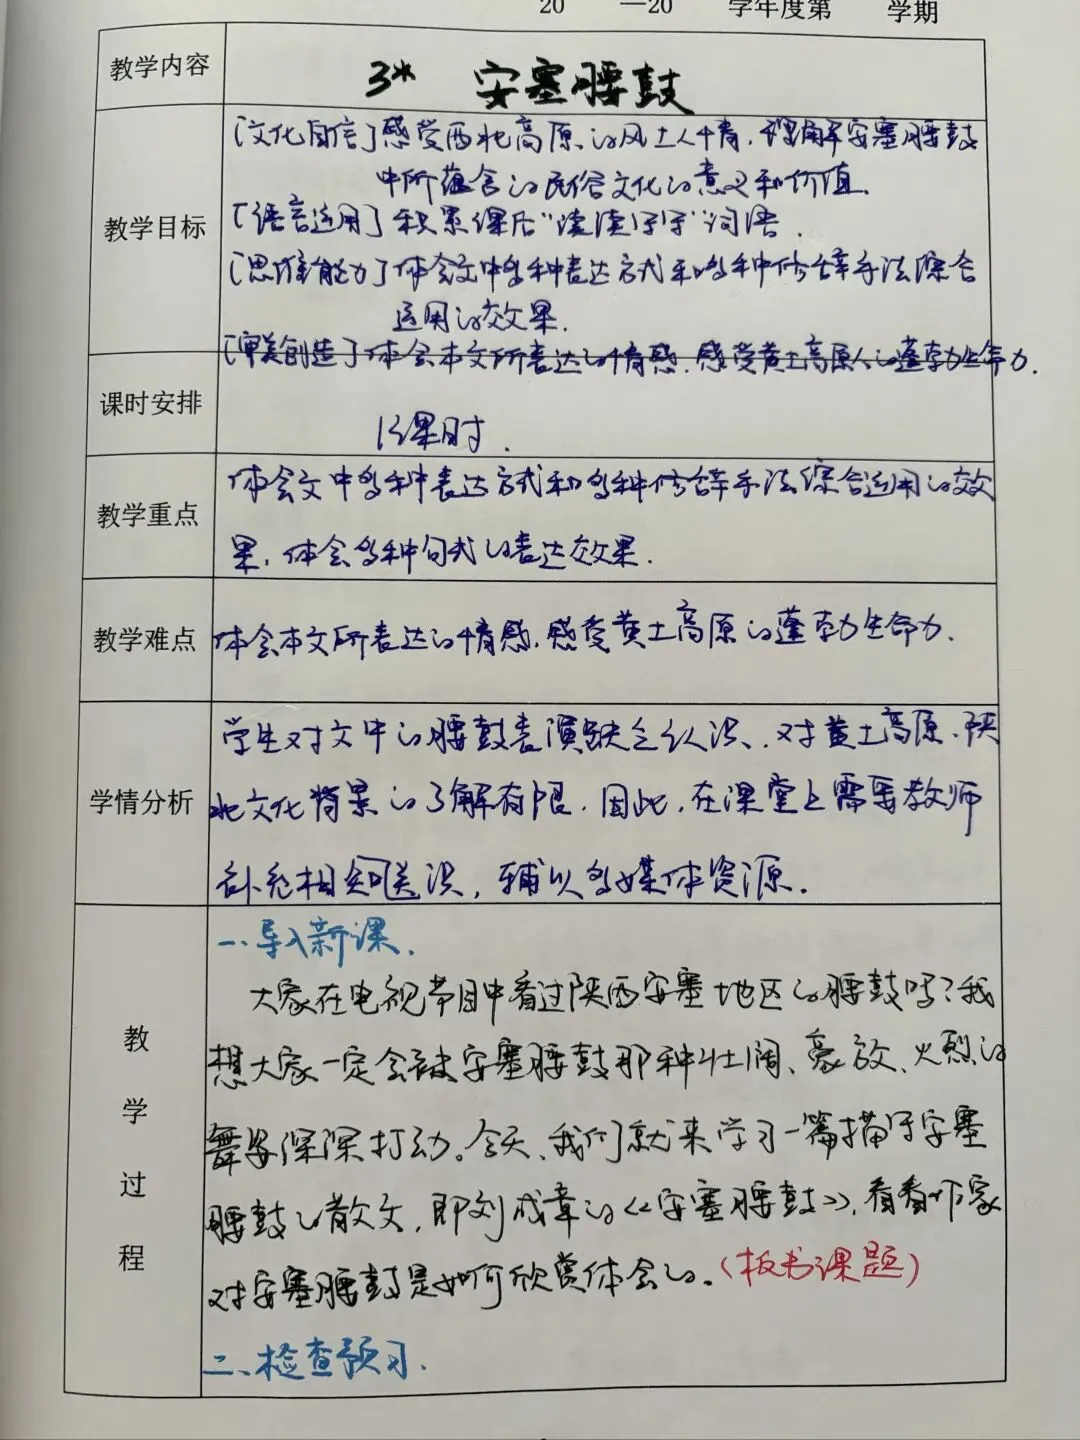 20 —20 学年度第 学期
教学内容
3* 安塞腰鼓
教学目标
[文化自信]感受西北高原的风土人情,理解安塞腰鼓
中所蕴含的民俗文化的意义和价值.
[语言运用]积累课后“读读写写”词语.
[思维能力]体会文中多种表达方式和多种修辞手法综合
运用的效果.
[审美创造]体会本文所表达的情感.感受黄土高原人的蓬勃生命力.
课时安排
1课时.
教学重点
体会文中多种表达方式和多种修辞手法综合运用的效
果,体会多种句式的表达效果.
教学难点
体会本文所表达的情感.感受黄土高原的蓬勃生命力.
学情分析
学生对文中的腰鼓表演缺乏认识、对黄土高原、陕
北文化背景的了解有限.因此,在课堂上需要教师
补充相关知识,辅以多媒体资源.
教学过程
一、导入新课.
大家在电视节目中看过陕西安塞地区的腰鼓吗?我
想大家一定会被安塞腰鼓那种壮阔、豪放、火烈的
舞姿深深打动。今天、我们就来学习一篇描写安塞
腰鼓的散文,即刘成章的《安塞腰鼓》,看看作家
对安塞腰鼓是如何欣赏体会的。(板书课题)
二、检查预习.